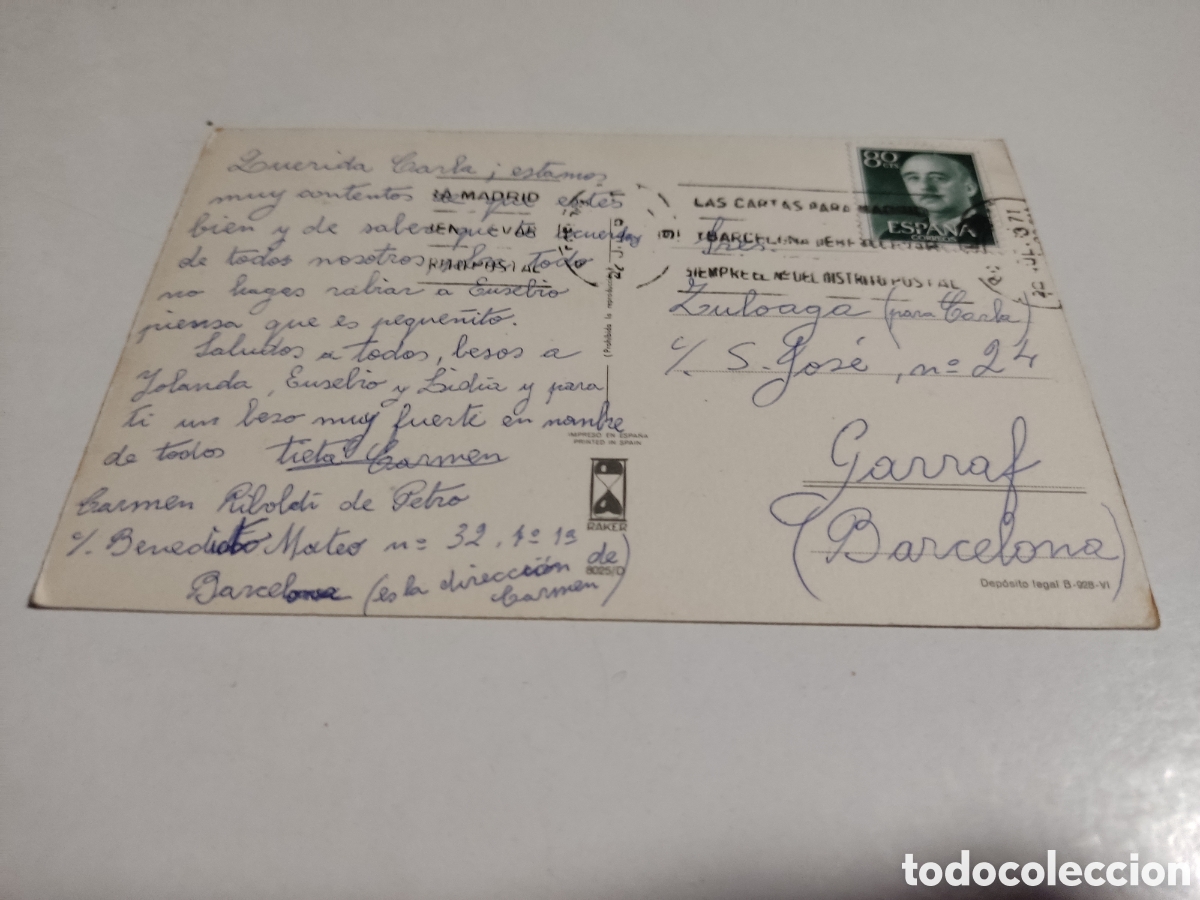 Querida Carla; estamos
muy contentos de que estés
bien y de saber que te acuerdas
de todos nosotros. Sobre todo
no hagas rabiar a Eusebio
piensa que es pequeñito.
Saludos a todos, besos a
Yolanda, Eusebio y Lidia y para
ti un beso muy fuerte en nombre
de todos Tieta Carmen
Carmen Riboldi de Petro
c/. Benedicto Mateo nº 32, 1º 1ª
Barcelona (es la dirección de
Carmen)
RA MADRID
POSTAL
(Prohibida la reproducción)
IMPRESO EN ESPAÑA
PRINTED IN SPAIN
RAKER
8025/D
80 CTS
ESPAÑA
CORREOS
LAS CARTAS PARA MADRID
Y BARCELONA DEBEN LLEVAR
SIEMPRE EL Nº DEL DISTRITO POSTAL
Sres.
Zuloaga (para Carla)
c/. S. José, nº 24
Garraf
(Barcelona)
Depósito legal B-928-VI
todocoleccion